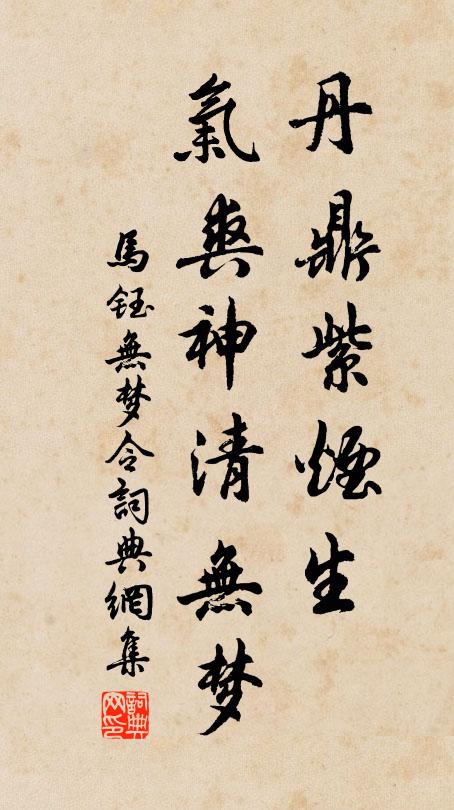 丹鼎紫煙生
氣爽神清無梦
馬鈺無梦令詞典網集
詞典网印